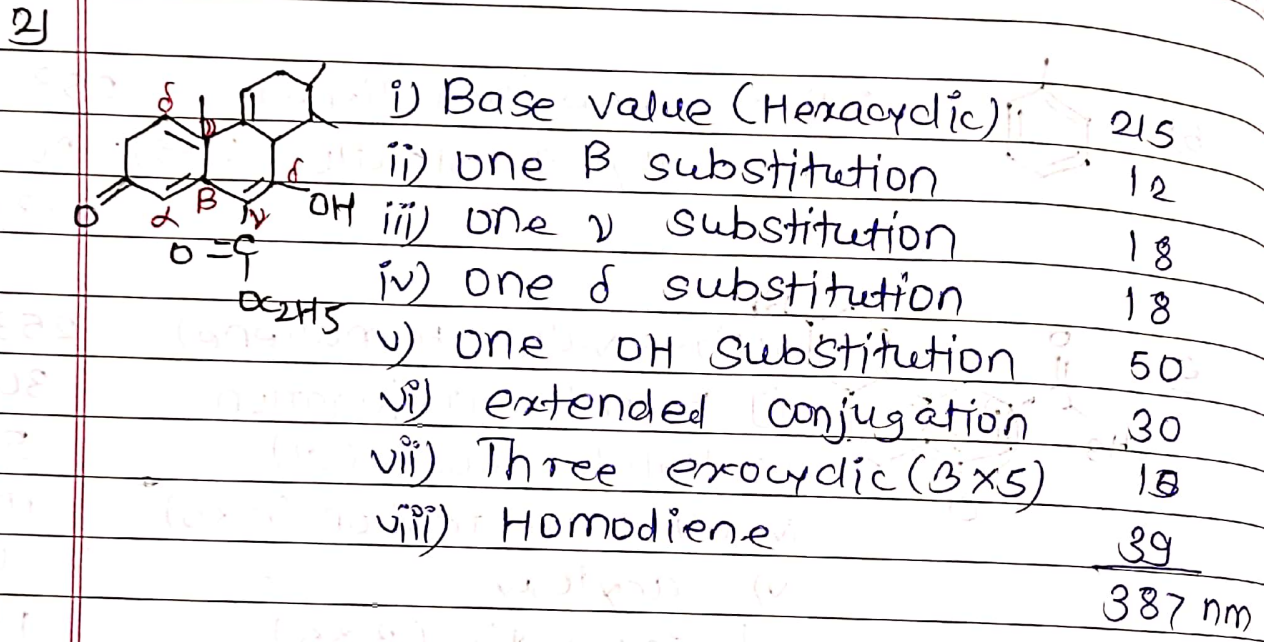 2)
i) Base value (Hexacyclic) 215
ii) one B substitution 12
iii) one ν substitution 18
iv) one δ substitution 18
v) one OH substitution 50
vi) extended conjugation 30
vii) Three exocyclic (3x5) 15
viii) Homodiene 39
387 nm
δ
ν
δ
O
α
B
ν
OH
O=C
OC2H5